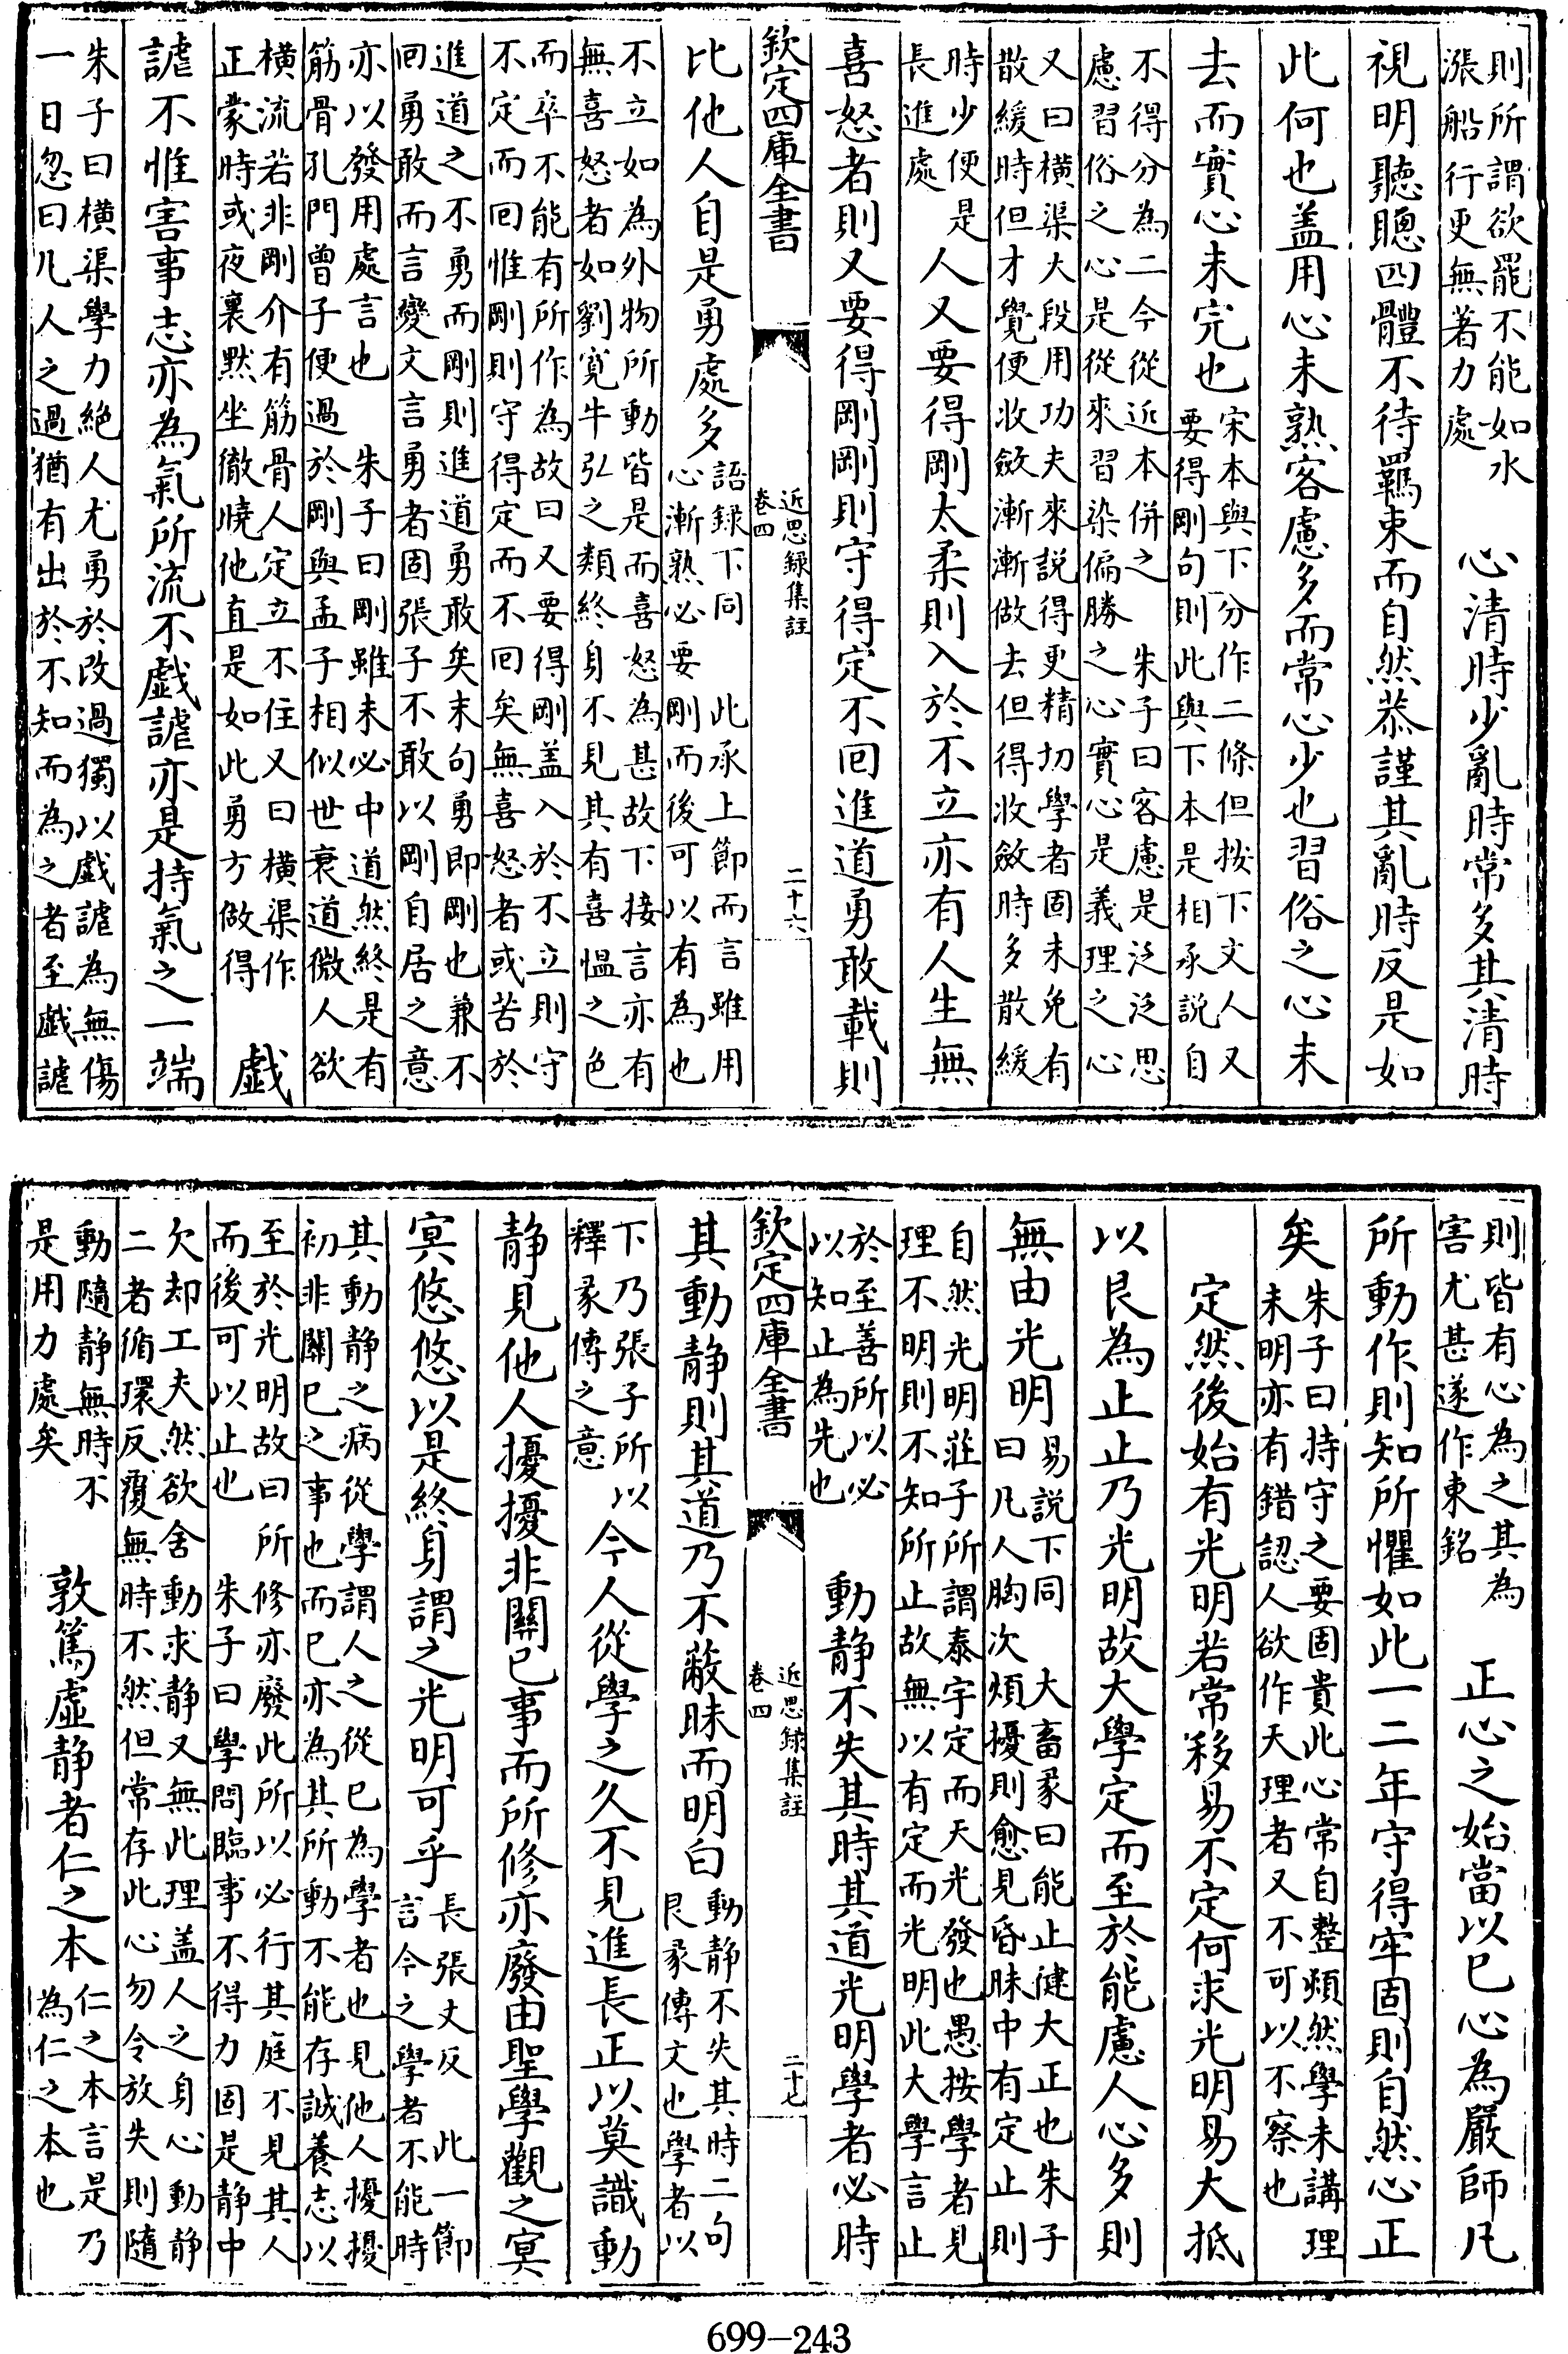 則所謂欲罷不能如水
漲船行更無著力處　心清時少亂時常多其清時
視明聽聰四體不待羈束而自然恭謹其亂時反是如
此何也盖用心未熟客慮多而常心少也習俗之心未
去而實心未完也宋本與下分作二條但按下文人又
要得剛句則此與下本是相承説自
不得分為二今從近本併之　朱子曰客慮是泛泛思
慮習俗之心是從來習染偏勝之心實心是義理之心
又曰横渠大段用功夫來説得更精切學者固未免有
散緩時但才覺便收斂漸漸做去但得收斂時多散緩
時少便是
長進處　人又要得剛太柔則入於不立亦有人生無
喜怒者則又要得剛剛則守得定不回進道勇敢載則
欽定四庫全書　近思録集註
卷四　二十六
比他人自是勇處多語録下同　此承上節而言雖用
心漸熟必要剛而後可以有為也
不立如為外物所動皆是而喜怒為甚故下接言亦有
無喜怒者如劉寛牛弘之類終身不見其有喜愠之色
而卒不能有所作為故曰又要得剛盖入於不立則守
不定而回惟剛則守得定而不回矣無喜怒者或苦於
進道之不勇而剛則進道勇敢矣末句勇即剛也兼不
回勇敢而言變文言勇者固張子不敢以剛自居之意
亦以發用處言也　朱子曰剛雖未必中道然終是有
筋骨孔門曾子便過於剛與孟子相似世衰道微人欲
横流若非剛介有筋骨人定立不住又曰横渠作
正蒙時或夜裏默坐徹曉他直是如此勇方做得　戲
謔不惟害事志亦為氣所流不戲謔亦是持氣之一端
朱子曰横渠學力絶人尤勇於改過獨以戲謔為無傷
一日忽曰凡人之過猶有出於不知而為之者至戲謔
則皆有心為之其為
害尤甚遂作東銘　正心之始當以已心為嚴師凡
所動作則知所懼如此一二年守得牢固則自然心正
矣朱子曰持守之要固貴此心常自整頓然學未講理
未明亦有錯認人欲作天理者又不可以不察也
定然後始有光明若常移易不定何求光明易大抵
以艮為止止乃光明故大學定而至於能慮人心多則
無由光明易説下同　大畜彖曰能止健大正也朱子
曰凡人胸次煩擾則愈見昏昧中有定止則
自然光明莊子所謂泰宇定而天光發也愚按學者見
理不明則不知所止故無以有定而光明此大學言止
於至善所以必
以知止為先也　動静不失其時其道光明學者必時
欽定四庫全書　近思録集註
卷四　二十七
其動静則其道乃不蔽昧而明白動静不失其時二句
艮彖傳文也學者以
下乃張子所以
釋彖傳之意　今人從學之久不見進長正以莫識動
静見他人擾擾非關已事而所修亦廢由聖學觀之冥
冥悠悠以是終身謂之光明可乎長張丈反　此一節
言今之學者不能時
其動静之病從學謂人之從已為學者也見他人擾擾
初非關已之事也而已亦為其所動不能存誠養志以
至於光明故曰所修亦廢此所以必行其庭不見其人
而後可以止也　朱子曰學問臨事不得力固是静中
欠却工夫然欲舍動求静又無此理盖人之身心動静
二者循環反覆無時不然但常存此心勿令放失則隨
動隨静無時不
是用力處矣　敦篤虛静者仁之本仁之本言是乃
為仁之本也
699-243